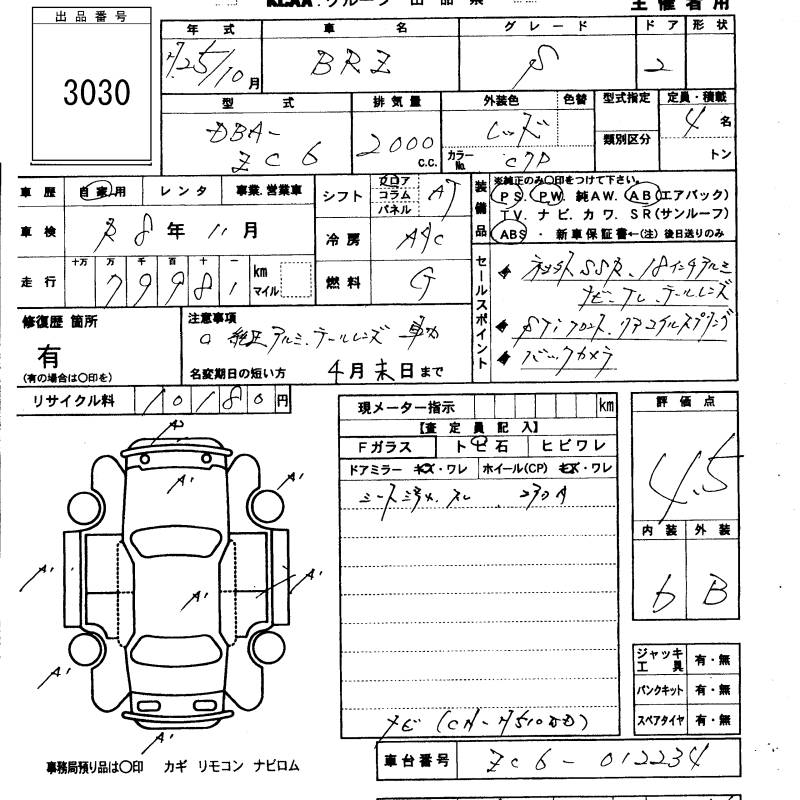 出品番号
3030
年式 車名 グレード ドア 形状
25/10月 BRZ S 2
型式 排気量 外装色 色替 型式指定 定員・積載
DBA-ZC6 2000 C.C. レッド 4名
カラーNo. C7P 類別区分 トン
車歴 自家用 レンタ 事業.営業車
シフト フロア コラム パネル AT
装備品 ※純正のみ〇印をつけて下さい。
PS. PW. 純AW. AB(エアバック)
TV. ナビ. カワ. SR(サンルーフ)
ABS ・ 新車保証書←(注) 後日送りのみ
車検 8年11月
冷房 A/C
走行 十万 万 千 百 十 一
79981 km マイル
燃料 G
セールスポイント
社外SSR、18インチアルミ
ナビ、TV、テールレンズ
STiフロント、リアコイルスプリング
バックカメラ
修復歴 箇所
有
(有の場合は〇印を)
注意事項
純正アルミ、テールレンズ
名変期日の短い方 4月末日まで
リサイクル料 10180円
現メーター指示 km
【査定員記入】
Fガラス トビ石 ヒビワレ
ドアミラー キズ・ワレ ホイール(CP) キズ・ワレ
ナビ (CN-
車台番号 ZC6-012234
評価点
4.5
内装 外装
b B
ジャッキ工具 有・無
パンクキット 有・無
スペアタイヤ 有・無
A'
A'
A'
A'
A'
A'
A'
A'
事務局預り品は〇印 カギ リモコン ナビロム